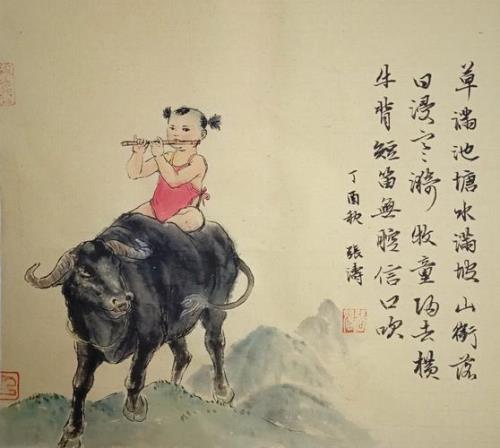 草满池塘水满坡山衔落
日浸寒漪牧童归去横
牛背短笛無腔信口吹
丁酉秋 張涛